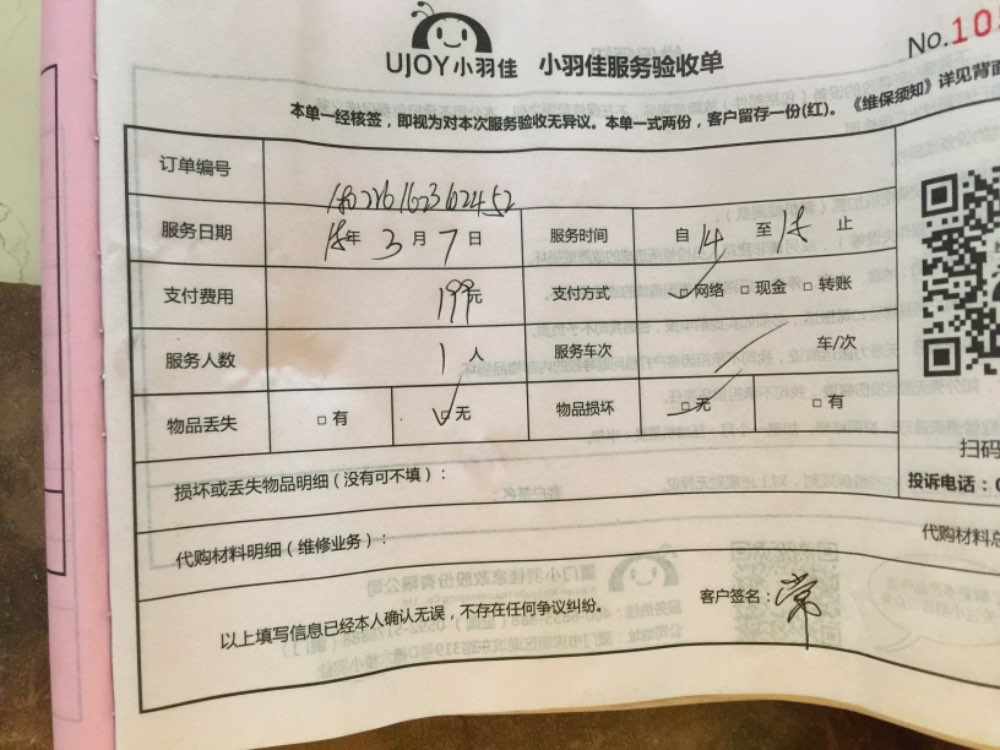 UJOY小羽佳 小羽佳服务验收单
No.10
本单一经核签，即视为对本次服务验收无异议。本单一式两份，客户留存一份(红)。《维保须知》详见背面
订单编号
服务日期 年 3 月 7 日 服务时间 自 14 至 止
支付费用 199元 支付方式 网络 □ 现金 □ 转账
服务人数 1 人 服务车次 车/次
物品丢失 □ 有 □ 无 物品损坏 □ 无 □ 有
扫码
损坏或丢失物品明细（没有可不填）：
投诉电话：0
代购材料明细（维修业务）： 代购材料总
以上填写信息已经本人确认无误，不存在任何争议纠纷。 客户签名：常